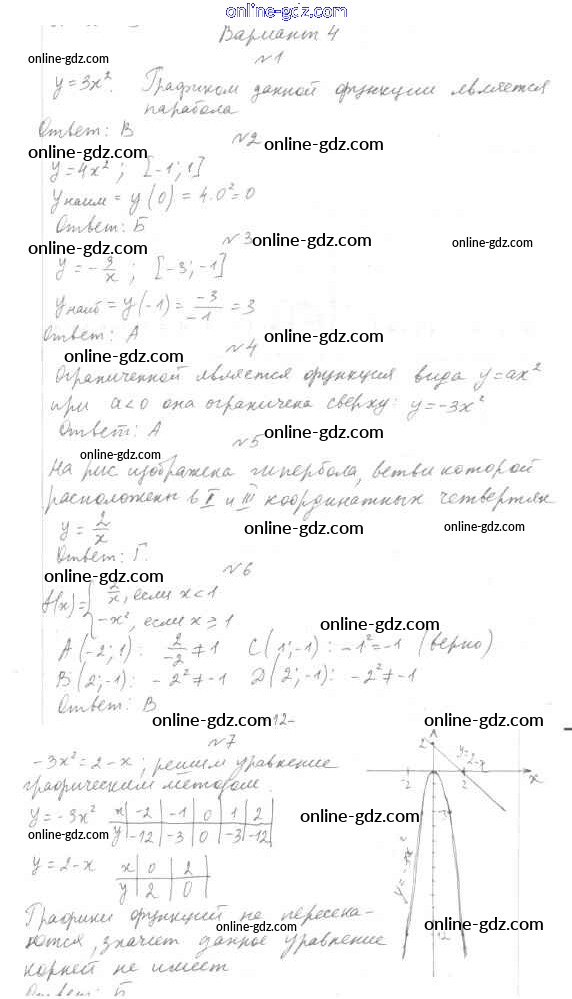 online-gdz.com
Вариант 4
online-gdz.com online-gdz.com
№1
y=3x². Графиком данной функции является
парабола
Ответ: В
№2
online-gdz.com online-gdz.com
y=4x²; [-1;1]
yнаим = y(0) = 4·0²=0
Ответ: Б
№3
online-gdz.com online-gdz.com online-gdz.com
y = -3/x; [-3;-1]
yнаиб = y(-1) = -3/-1 = 3
Ответ: А
online-gdz.com
№4
online-gdz.com
Ограниченной является функция вида y=ax²
при a<0 она ограничена сверху: y=-3x²
Ответ: А
online-gdz.com
№5
online-gdz.com
На рис изображена гипербола, ветви которой
расположены в I и III координатных четвертях
y = 2/x
online-gdz.com online-gdz.com
Ответ: Г.
№6
online-gdz.com online-gdz.com
f(x)= 2/x, если x<1
-x², если x ≥ 1
online-gdz.com
A(-2;1): 2/-2 ≠ 1 C(1;-1): -1²=-1 (верно)
B(2;-1): -2²≠-1 D(2;-1): -2²≠-1
Ответ: В
online-gdz.com 12- online-gdz.com
№7
-3x²=2-x; решим уравнение
графическим методом.
y=-3x² x -2 -1 0 1 2
y -12 -3 0 -3 -12
online-gdz.com online-gdz.com
y=2-x x 0 2
y 2 0
Графики функций не пересека-
ются, значит данное уравнение
корней не имеет
Ответ: Б
online-gdz.com online-gdz.com
2
y=2-x
-2 2 x
-3
y=-3x²
-12